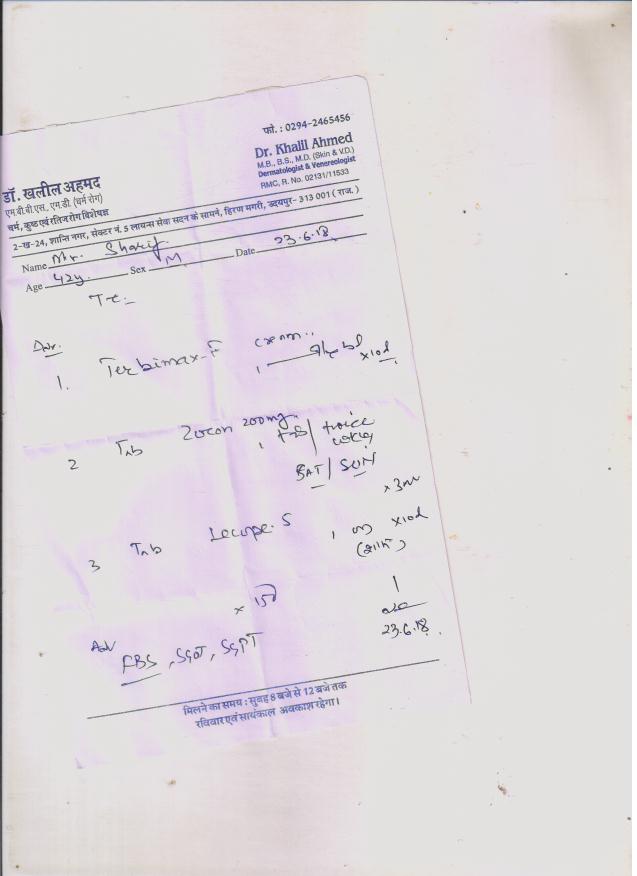 फो. : 0294-2465456
Dr. Khalil Ahmed
M.B., B.S., M.D. (Skin & V.D.)
Dermatologist & Venereologist
RMC, R. No. 02131/11533
डॉ. खलील अहमद
एम.बी.बी.एस., एम.डी. (चर्म रोग)
चर्म, कुष्ठ एवं रतिज रोग विशेषज्ञ
2-ख-24, शान्ति नगर, सेक्टर नं. 5 लायन्स सेवा सदन के सामने, हिरण मगरी, उदयपुर- 313 001 ( राज. )
Name Mr. Sharif
Age 42y Sex M Date 23.6.18
1. Terbimax-F cream
1 x10d
2 Tab Zocon 200mg
1 tab/ twice
SAT/ SUN
x 3m
3 Tab 5
1 x10d
x 15d
Adv
FBS, SGOT, SGPT
23.6.18
मिलने का समय : सुबह 8 बजे से 12 बजे तक
रविवार एवं सायंकाल अवकाश रहेगा।